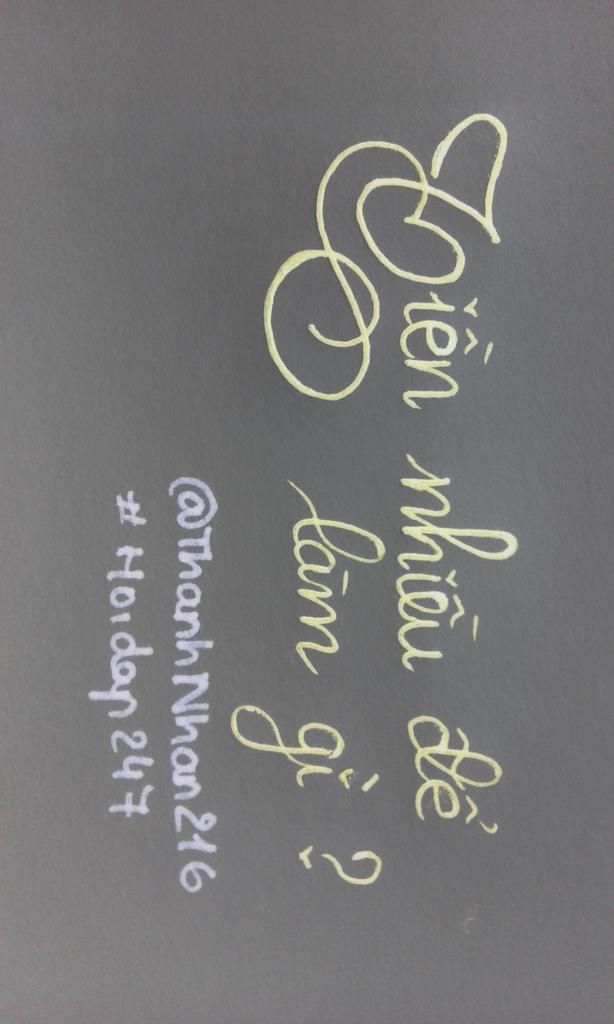 Tiền nhiều để
làm gì?
@ThanhNhan216
#Hoidap247